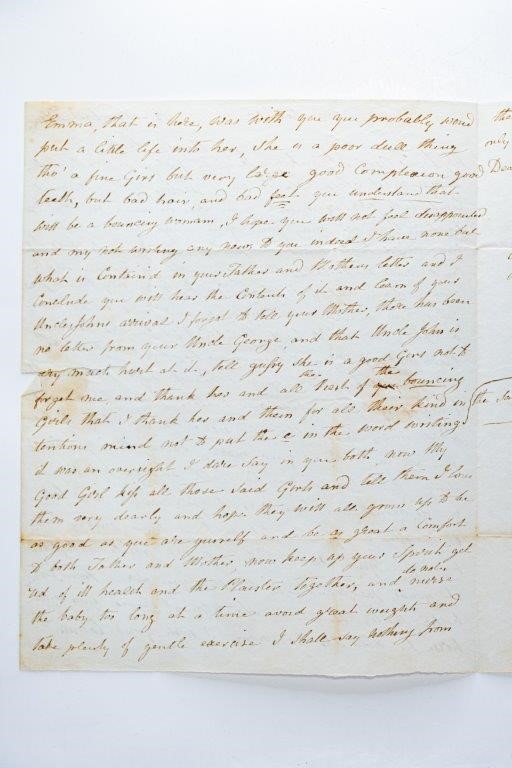 Emma, that is here, was with you you probably would
put a little life into her, she is a poor dull thing
tho' a fine Girl but very large good complexion good
teeth, but bad hair, and bad feet you understand that
will be a bouncing woman, I hope you will not feel disappointed
and my not writing any news to you indeed I have none but
what is Contained in your Father and Mothers letter and I
Conclude you will hear the Contents of it and learn of your
Uncle Johns arrival I forgot to tell your Mother, there has been
no letter from your Uncle George, and that Uncle John is
very much hurt at it, tell she is a good Girl not to
forget me, and thank her and all the rest of the bouncing
Girls that I thank her and them for all their kind in
tentions mind not to put the e in the word writing
it was an oversight I dare say in you both now My
Good Girl kiss all those said Girls and tell them I love
them very dearly and hope they will all grown up to be
as good as you are yourself and be as great a Comfort
to both Father and Mother, now keep up your Spirits get
rid of ill health and the Plaister together, and do not nurse
the baby too long at a time avoid great weights and
take plenty of gentle exercise I shall say nothing from
the
only
Dea
the